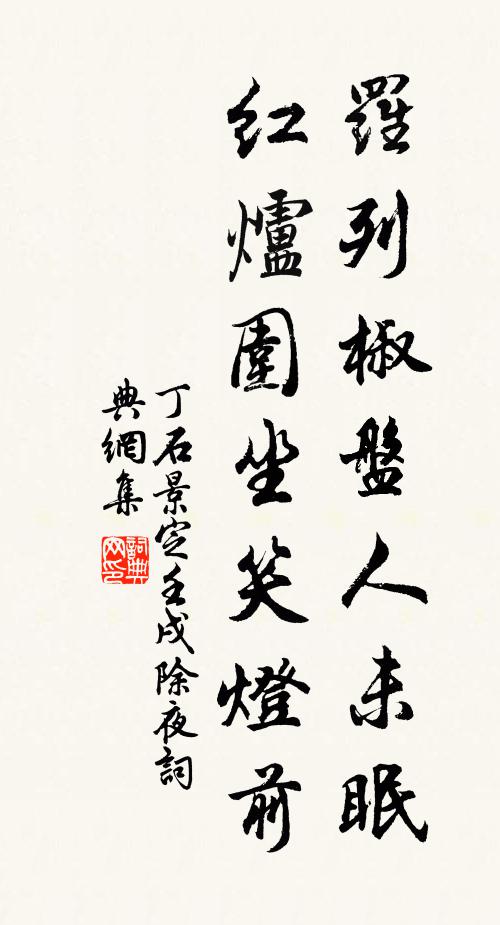 羅列椒盤人未眠
紅爐圍坐笑燈前
丁石景定壬戌除夜詞
典網集
詞典網印